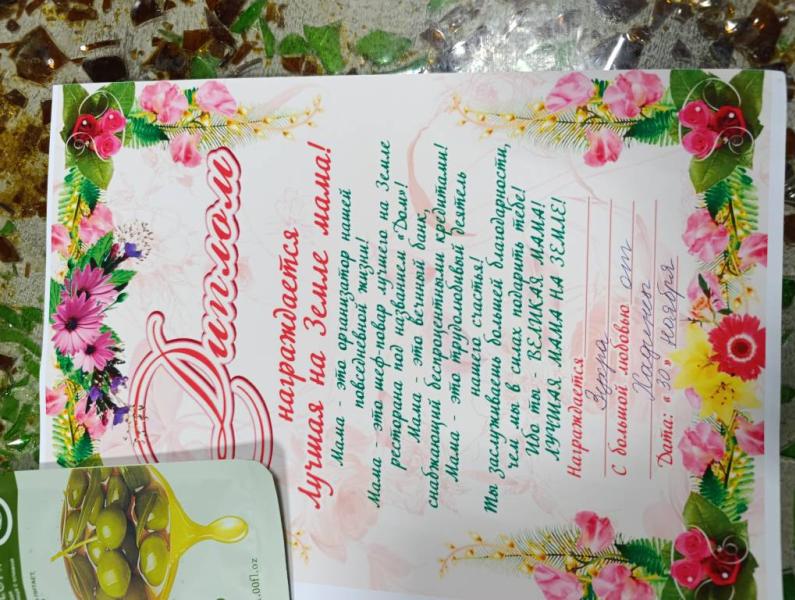 Диплом
награждается
Лучшая на Земле мама!
Мама - это организатор нашей
повседневной жизни!
Мама - это шеф-повар лучшего на Земле
ресторана под названием «Дом»!
Мама - это великий банк,
снабжающий беспроцентными кредитами!
Мама - это трудолюбивый деятель
нашего счастья!
Ты заслуживаешь большей благодарности,
чем мы в силах подарить тебе!
Ибо ты - ВЕЛИКАЯ МАМА!
ЛУЧШАЯ МАМА НА ЗЕМЛЕ!
Награждается
Зера
С большой любовью от
Дата: «30» ноября
.00fl.oz